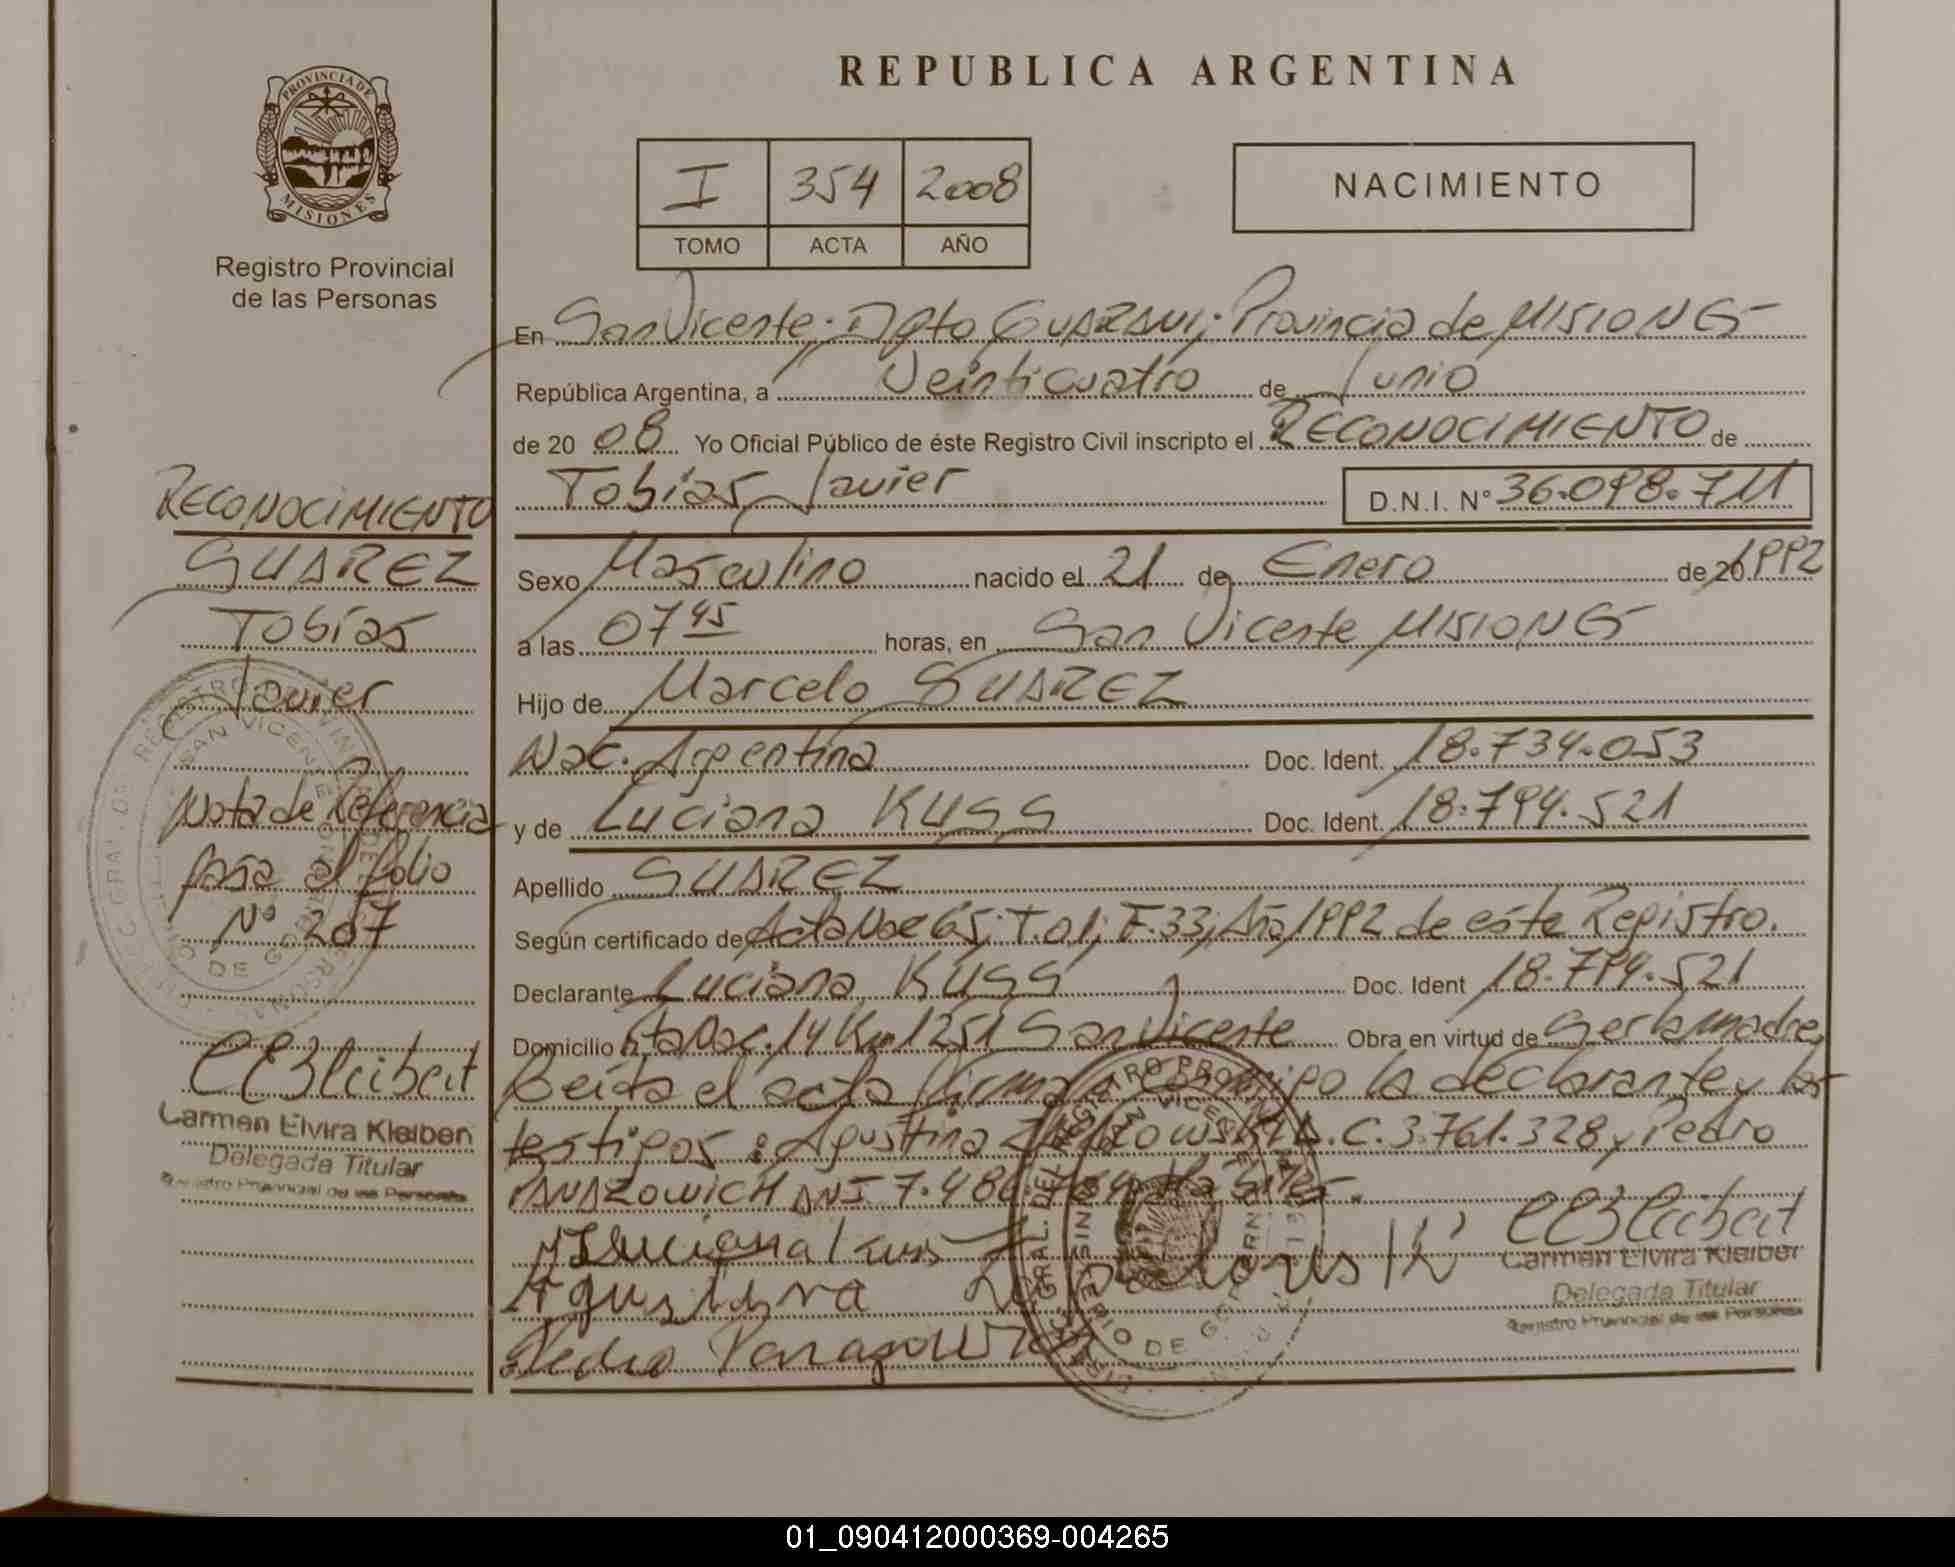 REPUBLICA ARGENTINA
PROVINCIA DE
MISIONES
Registro Provincial
de las Personas
I 354 2008
TOMO ACTA AÑO
NACIMIENTO
En San Vicente; Dpto GUARANI; Provincia de MISIONES
República Argentina, a Veinticuatro de Junio
de 20 08 Yo Oficial Público de éste Registro Civil inscripto el RECONOCIMIENTO de
Tobías Javier D.N.I. N° 36.098.711
Sexo Masculino nacido el 21 de Enero de 20 1992
a las 07 45 horas, en San Vicente MISIONES
Hijo de Marcelo SUAREZ
Nac. Argentina Doc. Ident. 18.734.053
y de Luciana KUSS Doc. Ident. 18.794.521
Apellido SUAREZ
Según certificado de Acta Nac 65; T.01; F.33; Año 1992 de este Registro.
Declarante Luciana KUSS Doc. Ident 18.794.521
Domicilio Km 1251 San Vicente Obra en virtud de Ser la madre
Leida el acta firma conmigo la declarante y los
testigos: Agustina L.C. 3.761.328 y Pedro
DNI 7.48 Hábiles.
Luciana Kuss
Agustina
Pedro
Carmen Elvira Kleiber
Delegada Titular
Registro Provincial de las Personas
RECONOCIMIENTO
SUAREZ
Tobías
Javier
Nota de Referencia
pasa al folio
N° 207
Carmen Elvira Kleiber
Delegada Titular
Registro Provincial de las Personas
01_090412000369-004265